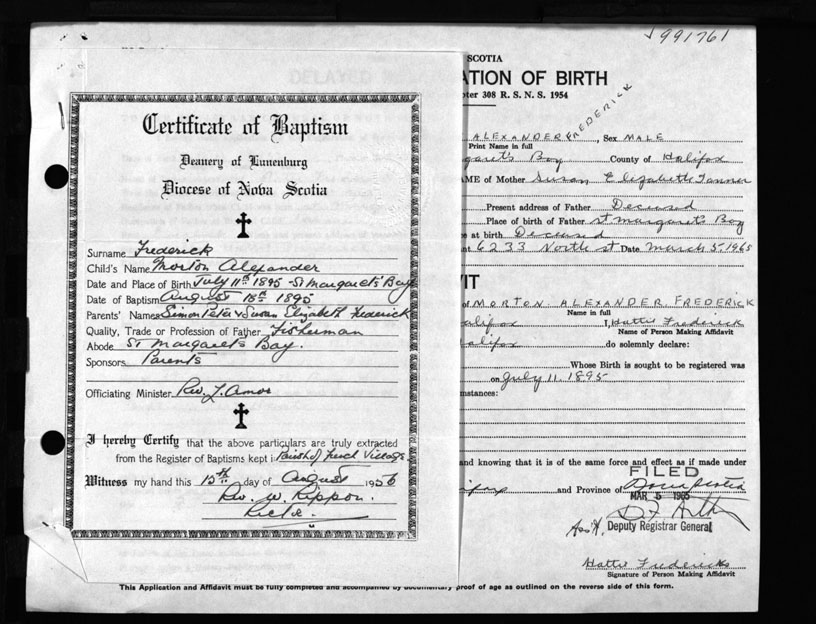 J991761
Certificate of Baptism
Deanery of Lunenburg
Diocese of Nova Scotia
Surname Frederick
Child's Name Morton Alexander
Date and Place of Birth July 11th 1895 - St Margaret's Bay
Date of Baptism August 18th 1895
Parents' Names Simon Peter & Susan Elizabeth Frederick
Quality, Trade or Profession of Father Fisherman
Abode St Margarets Bay.
Sponsors Parents
Officiating Minister Rev. J. Amor
I hereby Certify that the above particulars are truly extracted
from the Register of Baptisms kept in Parish of French Village
Witness my hand this 15th day of August 1956
Rev. W. Rippon.
SCOTIA
ATION OF BIRTH
pter 308 R. S. N. S. 1954
ALEXANDER FREDERICK, Sex MALE
Print Name in full
garet's Bay County of Halifax
AME of Mother Susan Elizabeth Tanner
Present address of Father Deceased
Place of birth of Father St margaret's Bay
e at birth Deceased
nt 6233 North st Date March 5-1965
VIT
of MORTON ALEXANDER FREDERICK
Name in full
alifax I, Hattie Frederick
Name of Person Making Affidavit
alifax do solemnly declare:
Whose Birth is sought to be registered was
on July 11. 1895
mstances:
and knowing that it is of the same force and effect as if made under
FILED
and Province of Nova Scotia
MAR 5 1965
Ass't. Deputy Registrar General
Hattie Frederick
Signature of Person Making Affidavit
This Application and Affidavit must be fully completed and accompanied by documentary proof of age as outlined on the reverse side of this form.